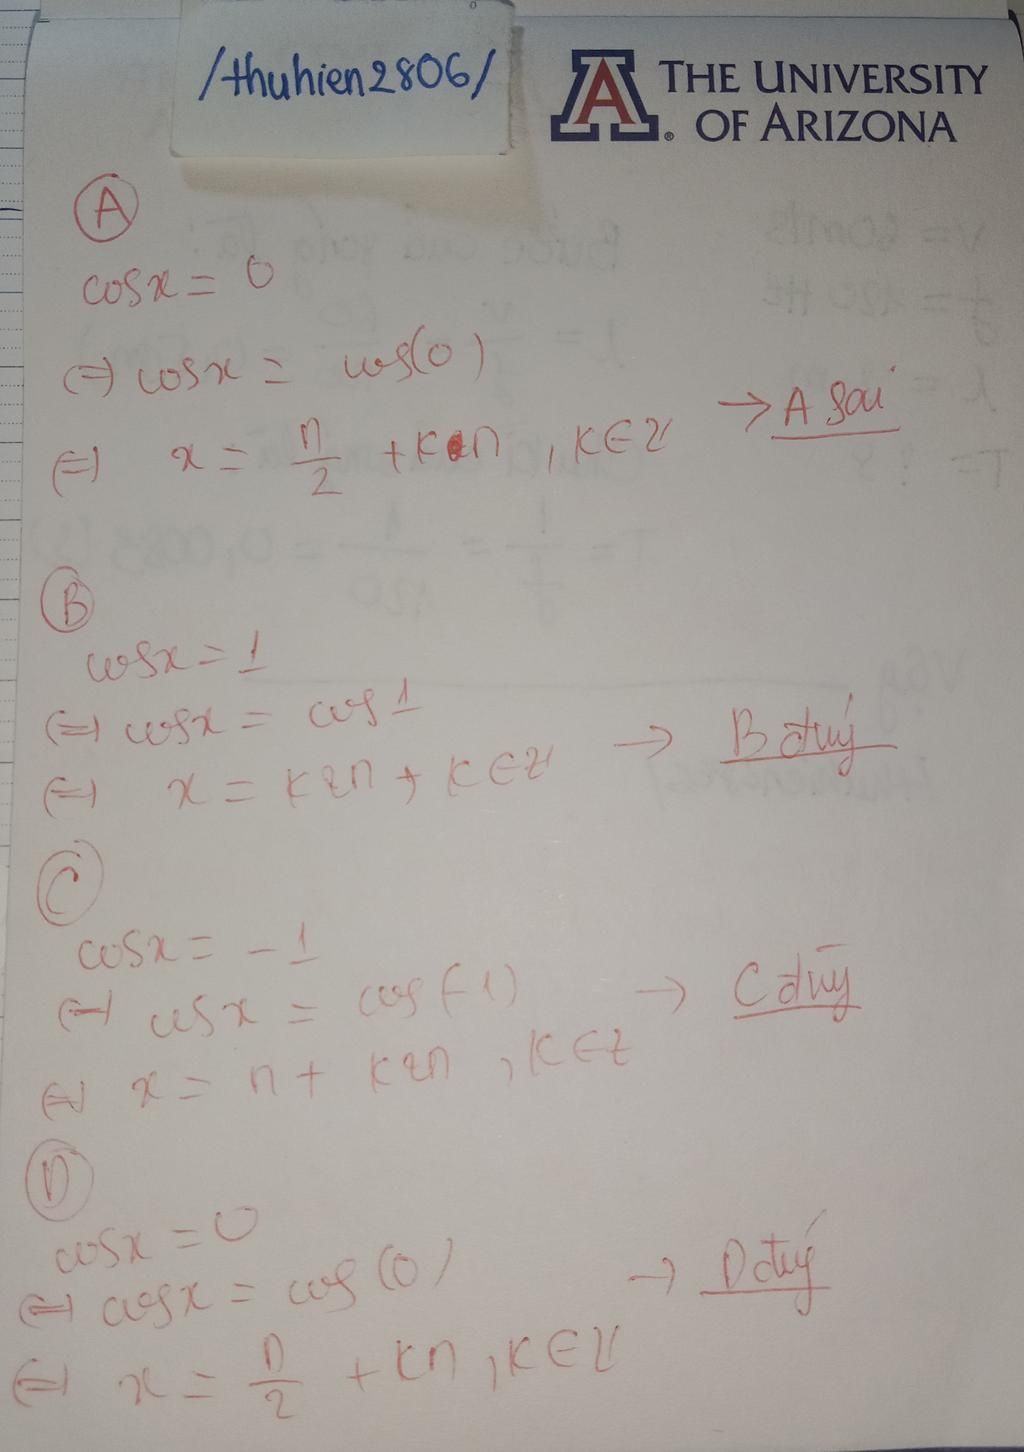 /thuhien2806/
THE UNIVERSITY
OF ARIZONA
A
cosx = 0
(=) cosx = cos(0)
(=) x = π/2 + kπ, k∈Z → A sai
B
cosx = 1
(=) cosx = cos1
(=) x = k2π, k∈Z → B đúng
C
cosx = -1
(=) cosx = cos(-1) → C đúng
(=) x = π + k2π, k∈Z
D
cosx = 0
(=) cosx = cos(0) → D đúng
(=) x = π/2 + kπ, k∈Z